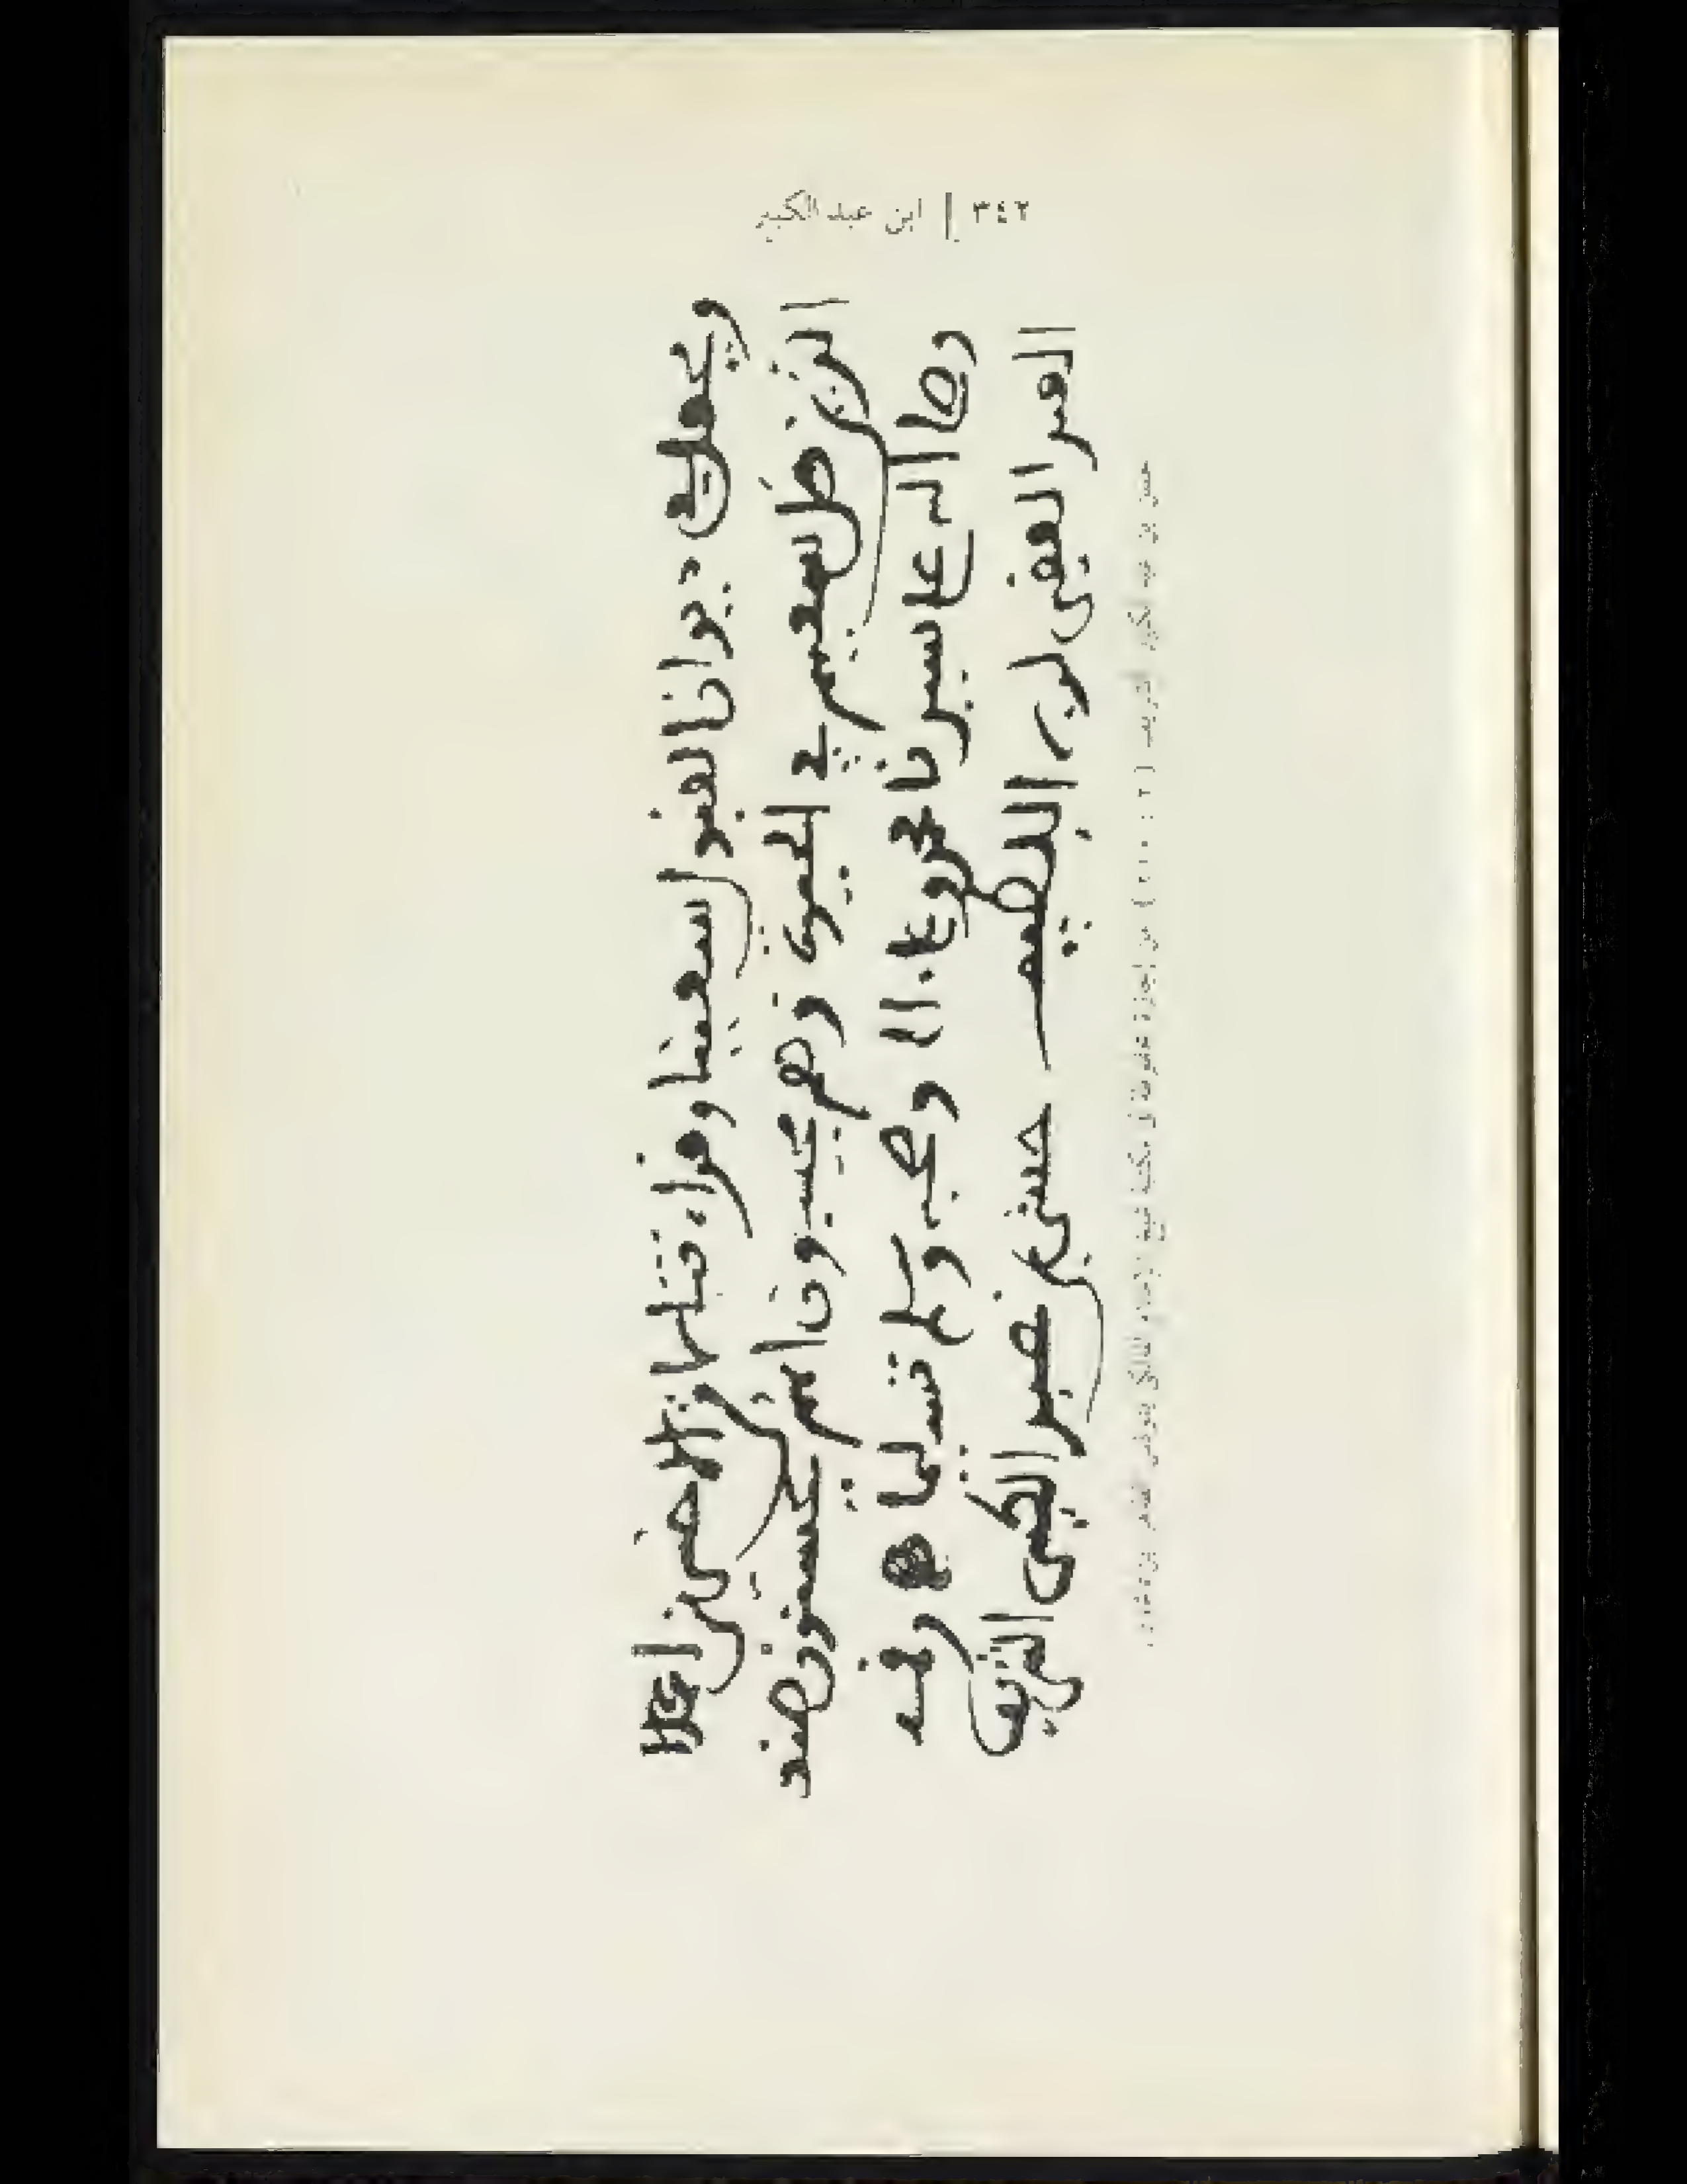 ٣٤٢ | ابن عبد الكبير
ديوان القبول سعينا وقراءتنا الاخسرين اعمالا
الذين ضل سعيهم في الحيوة وهم يحسبون انهم يحسنون صنعا
وصلى الله على سيدنا محمد وعلى اله وصحبه وسلم تسليما
العبد الفقير لربه حسن بن عبد الكبير الشريف
حسن بن عبد الكبير الشريف عن إجازة محفوظة في مكتبة شيخ الإسلام المالكي بتونس الطاهر بن عاشور